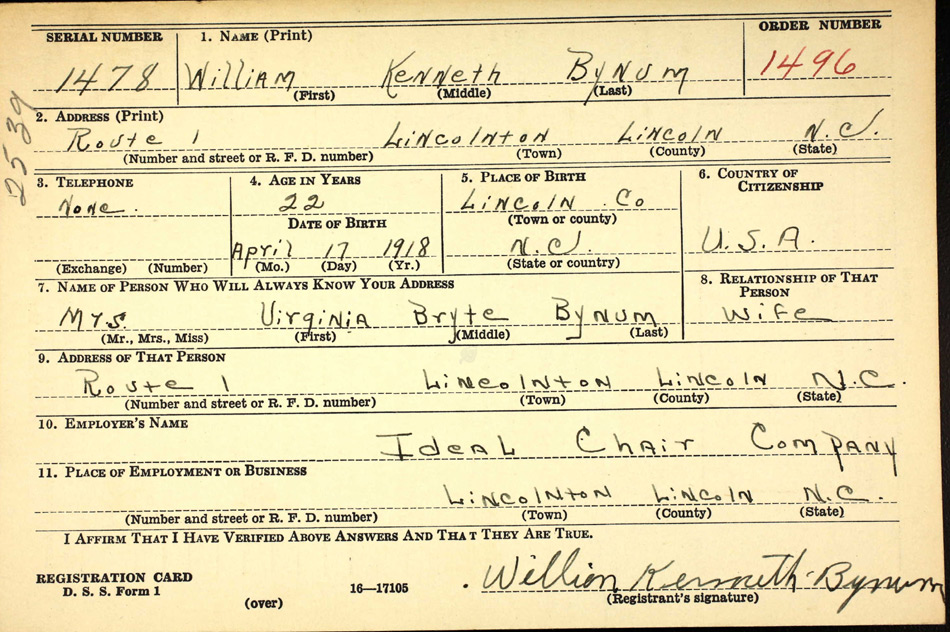 SERIAL NUMBER 1. NAME (Print) ORDER NUMBER
1478 William Kenneth Bynum 1496
(First) (Middle) (Last)
2539
2. ADDRESS (Print)
Route 1 Lincolnton Lincoln N.C.
(Number and street or R. F. D. number) (Town) (County) (State)
3. TELEPHONE 4. AGE IN YEARS 5. PLACE OF BIRTH 6. COUNTRY OF CITIZENSHIP
None. 22 Lincoln Co
DATE OF BIRTH (Town or county)
April 17 1918 N.C. U.S.A.
(Exchange) (Number) (Mo.) (Day) (Yr.) (State or country)
7. NAME OF PERSON WHO WILL ALWAYS KNOW YOUR ADDRESS 8. RELATIONSHIP OF THAT PERSON
Mrs. Virginia Bryte Bynum Wife
(Mr., Mrs., Miss) (First) (Middle) (Last)
9. ADDRESS OF THAT PERSON
Route 1 Lincolnton Lincoln N.C.
(Number and street or R. F. D. number) (Town) (County) (State)
10. EMPLOYER'S NAME
Ideal Chair Company
11. PLACE OF EMPLOYMENT OR BUSINESS
Lincolnton Lincoln N.C.
(Number and street or R. F. D. number) (Town) (County) (State)
I AFFIRM THAT I HAVE VERIFIED ABOVE ANSWERS AND THAT THEY ARE TRUE.
REGISTRATION CARD
D. S. S. Form 1 16—17105 William Kenneth Bynum
(over) (Registrant's signature)